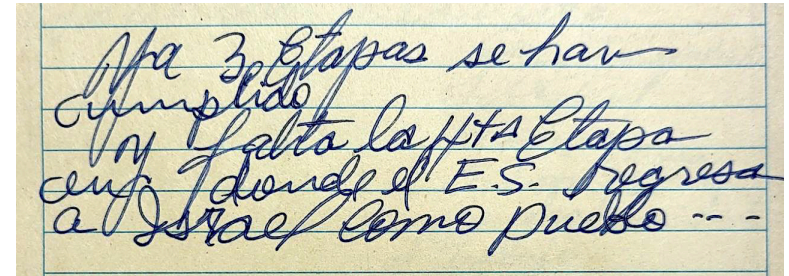 Ya 3 Etapas se han
cumplido
y falta la 4ta Etapa
en donde el E.S. regresa
a Israel como pueblo ----